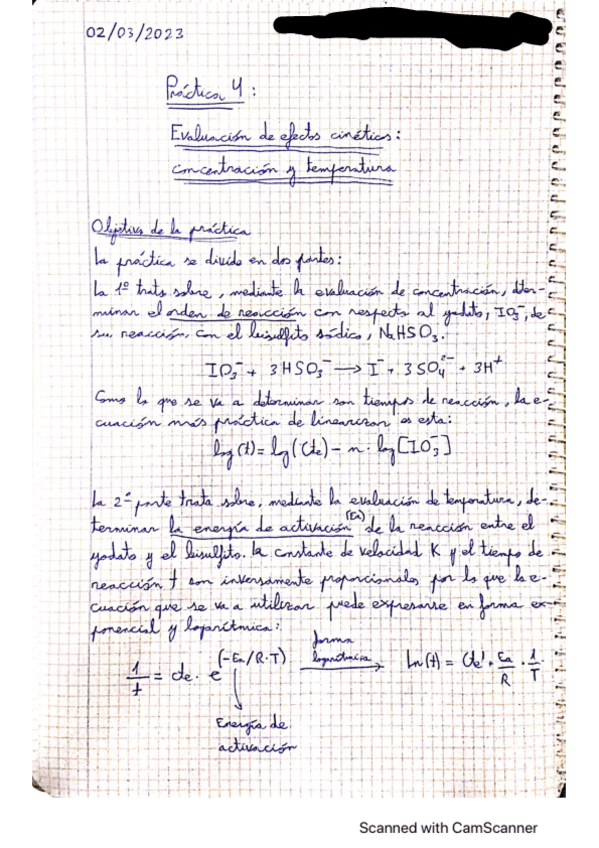 02/03/2023
Práctica 4:
Evaluación de efectos cinéticos:
concentración y temperatura
Objetivo de la práctica
La práctica se divide en dos partes:
La 1º trata sobre, mediante la evaluación de concentración, deter-
minar el orden de reacción con respecto al yodato, IO3⁻, de
su reacción con el bisulfito sódico, NaHSO3.
IO3⁻ + 3HSO3⁻ → I⁻ + 3SO4²⁻ + 3H⁺
Como lo que se va a determinar son tiempos de reacción, la e-
cuación más práctica de linearizar es esta:
log(t) = log(Cte) - n · log[IO3⁻]
La 2ª parte trata sobre, mediante la evaluación de temperatura, de-
terminar la energía de activación (Ea) de la reacción entre el
yodato y el bisulfito. La constante de velocidad K y el tiempo de
reacción t son inversamente proporcionales por lo que la e-
cuación que se va a utilizar puede expresarse en forma ex-
ponencial y logarítmica:
1/t = cte · e^(-Ea/R·T) forma logarítmica → Ln(t) = Cte' + Ea/R · 1/T
Energía de
activación
Scanned with CamScanner